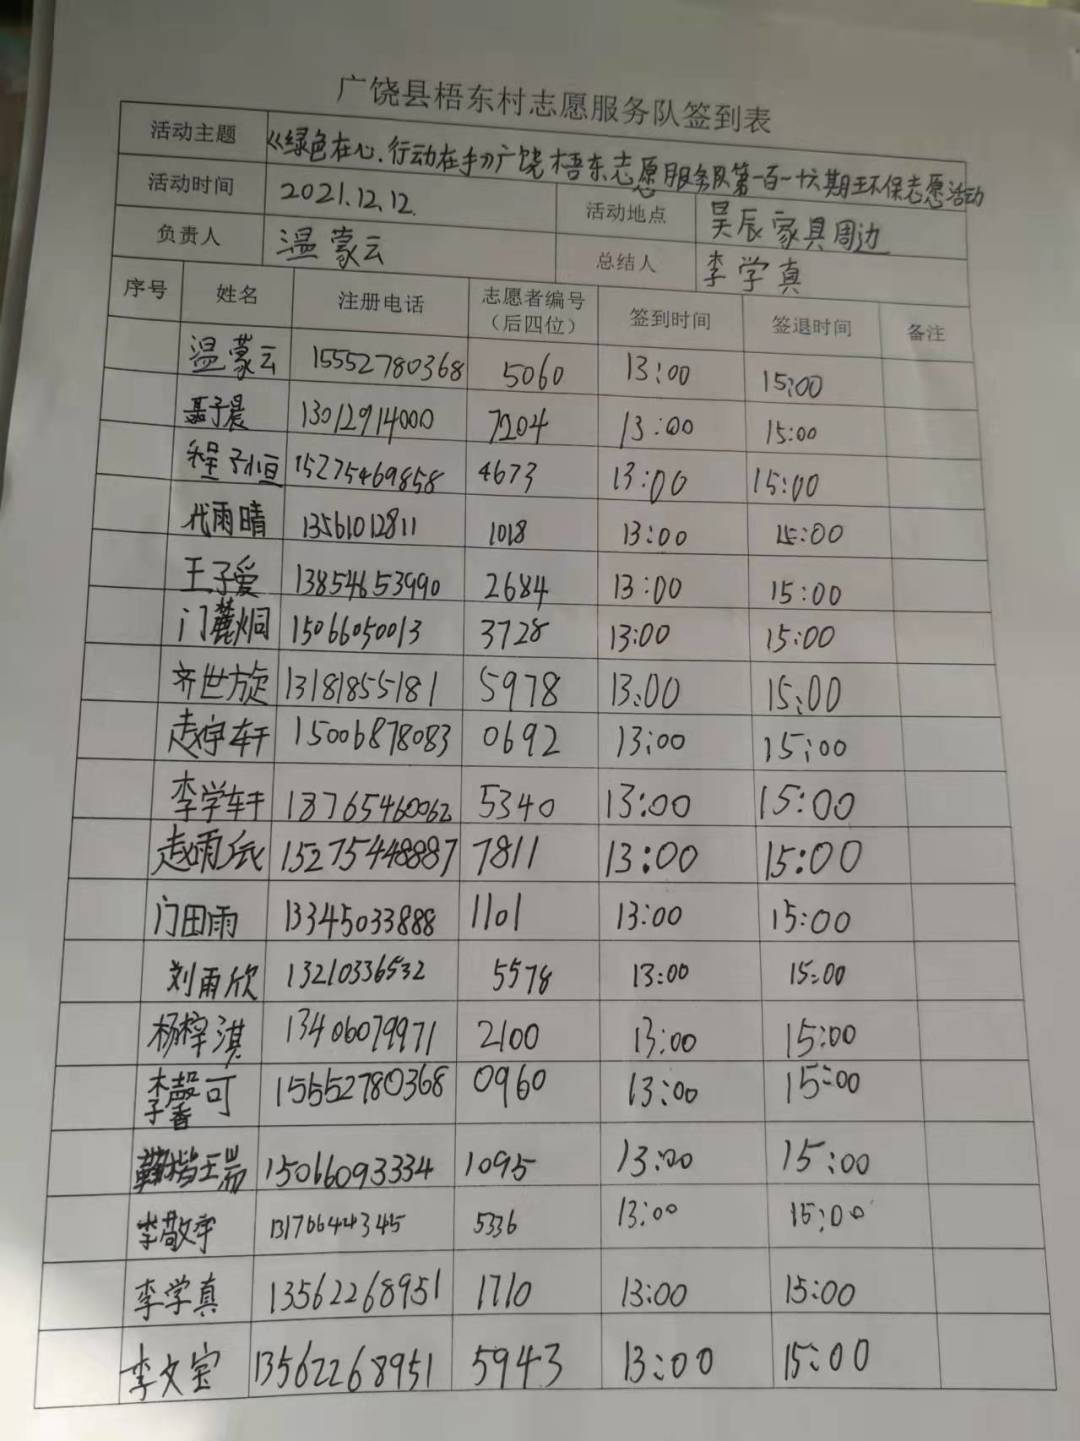 广饶县梧东村志愿服务队签到表
活动主题 《绿色在心.行动在手》广饶梧东志愿服务队第一百一十六期环保志愿活动
活动时间 2021.12.12. 活动地点 昊辰家具周边
负责人 温蒙云 总结人 李学真
序号 姓名 注册电话 志愿者编号（后四位） 签到时间 签退时间 备注
温蒙云 15552780368 5060 13:00 15:00
聂子晨 13012914000 7204 13:00 15:00
程子恒 15275469858 4673 13:00 15:00
代雨晴 13561012811 1018 13:00 15:00
王子爱 13854653990 2684 13:00 15:00
门麓炯 15066050013 3728 13:00 15:00
齐世旋 13181855181 5978 13:00 15:00
赵宇轩 15006878083 0692 13:00 15:00
李学轩 18765460062 5340 13:00 15:00
赵雨辰 15275448887 7811 13:00 15:00
门田雨 13345033888 1101 13:00 15:00
刘雨欣 13210336532 5578 13:00 15:00
杨梓淇 13406079971 2100 13:00 15:00
李馨可 15552780368 0960 13:00 15:00
15066093334 1095 13:00 15:00
李敬宇 13176644345 5336 13:00 15:00
李学真 13562268951 1710 13:00 15:00
李文宝 13562268951 5943 13:00 15:00